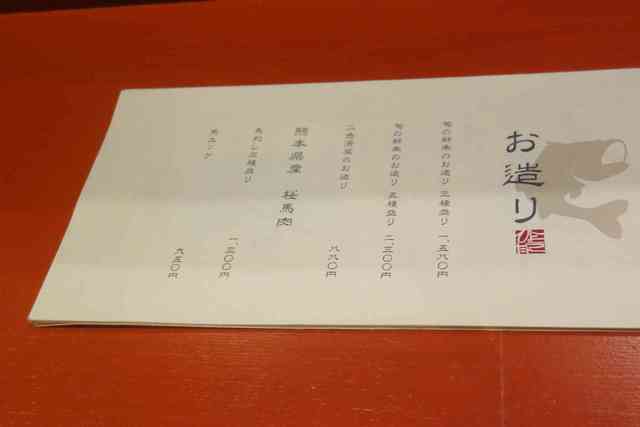 お造り
旬の鮮魚のお造り 三種盛り 一、五八〇円
旬の鮮魚のお造り 五種盛り 二、三〇〇円
八八〇円
熊本県産 桜馬肉
馬刺し三種盛り 一、三〇〇円
馬ユッケ 九五〇円